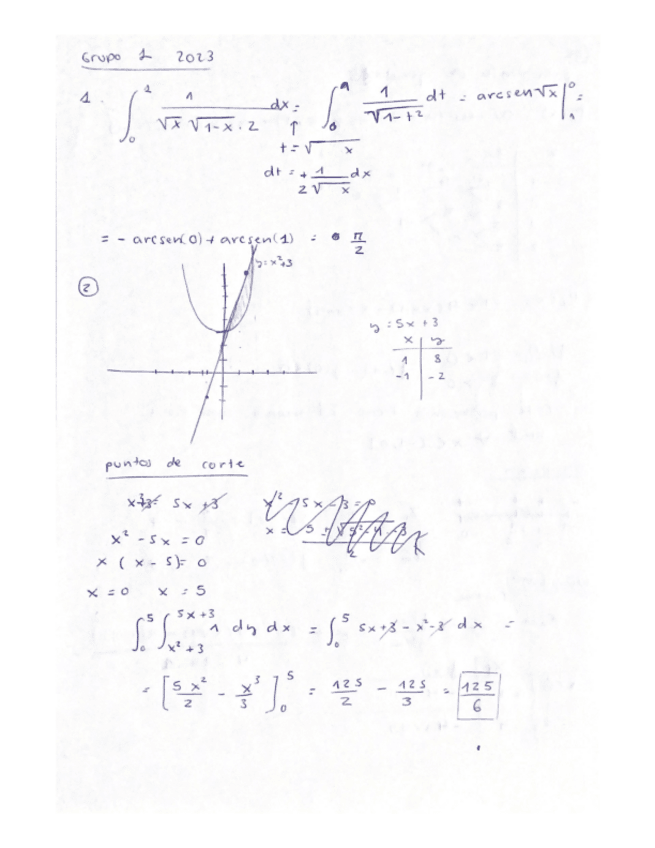 Grupo 1 2023
1. ∫₀¹ 1/(√x √1-x · 2) dx = ∫₀¹ 1/√1-t² dt = arcsen √x |₁⁰ =
↑
t = √x
dt = + 1/(2√x) dx
= - arcsen(0) + arcsen(1) = π/2
② y = x²+3
y = 5x + 3
x | y
1 | 8
-1 | -2
puntos de corte
x²+3 = 5x + 3
x² - 5x = 0
x (x - 5) = 0
x = 0 x = 5
∫₀⁵ ∫_{x²+3}^{5x+3} 1 dy dx = ∫₀⁵ 5x+3 - x²-3 dx =
= [5x²/2 - x³/3]₀⁵ = 125/2 - 125/3 = 125/6